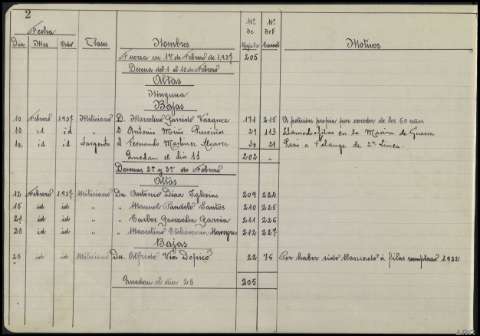 2
Fecha
Dia Mes Año Clase Nombres Nº de Nº del Motivos
Fuerza en 1º de Febrero de 1,937 205
Decena del 1 al 10 de Febrero
Altas
Ninguna
Bajas
10 Febrero 1937 Miliciano D. Marcelino Garrido Vázquez 171 215 A petición propia por exceder de los 60 años
10 id id " D. Antonio 29 113 Llamado filas en la Marina de Guerra
10 id id Sargento D. Fernando Martínez 30 21 Pasa a Falange de 2ª Linea
Quedan el dia 11 202
Decenas 2ª y 3ª de Febrero
Altas
12 Febrero 1937 Miliciano Dn. Antonio Díaz Iglesias 209 224
15 id id " " Manuel Santos 210 225
21 id id " " Carlos González García 211 226
28 id id " " Marcelino 212 227
Bajas
28 id id Miliciano Dn. Alfredo Vía Dopico 22 76 Por haber sido llamado á filas reemplazo 1932
Quedan el dia 28 205